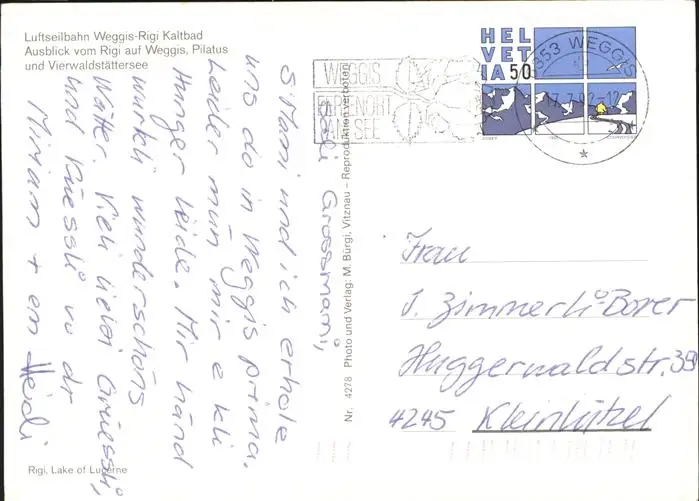 Luftseilbahn Weggis-Rigi Kaltbad
Ausblick vom Rigi auf Weggis, Pilatus
und Vierwaldstättersee
HEL
VET
IA 50
6353 WEGGIS
17.7.92-12
WEGGIS
FERIENORT
AM SEE
Liebi Grossmami,
S'Mami und ich erhole
uns do in Weggis prima.
Leider mun mir e kli
Hunger leide. Mir händ
würkli wunderschöns
Wätter. Vieli liebi Grüessli,
und Küessli vo dr
Miriam + em Heidi
Nr. 4278 Photo und Verlag: M. Bürgi, Vitznau – Reproduktion verboten
Frau
J. Zimmerli-Borer
Huggerwaldstr. 39
4245 Kleinlützel
Rigi, Lake of Lucerne